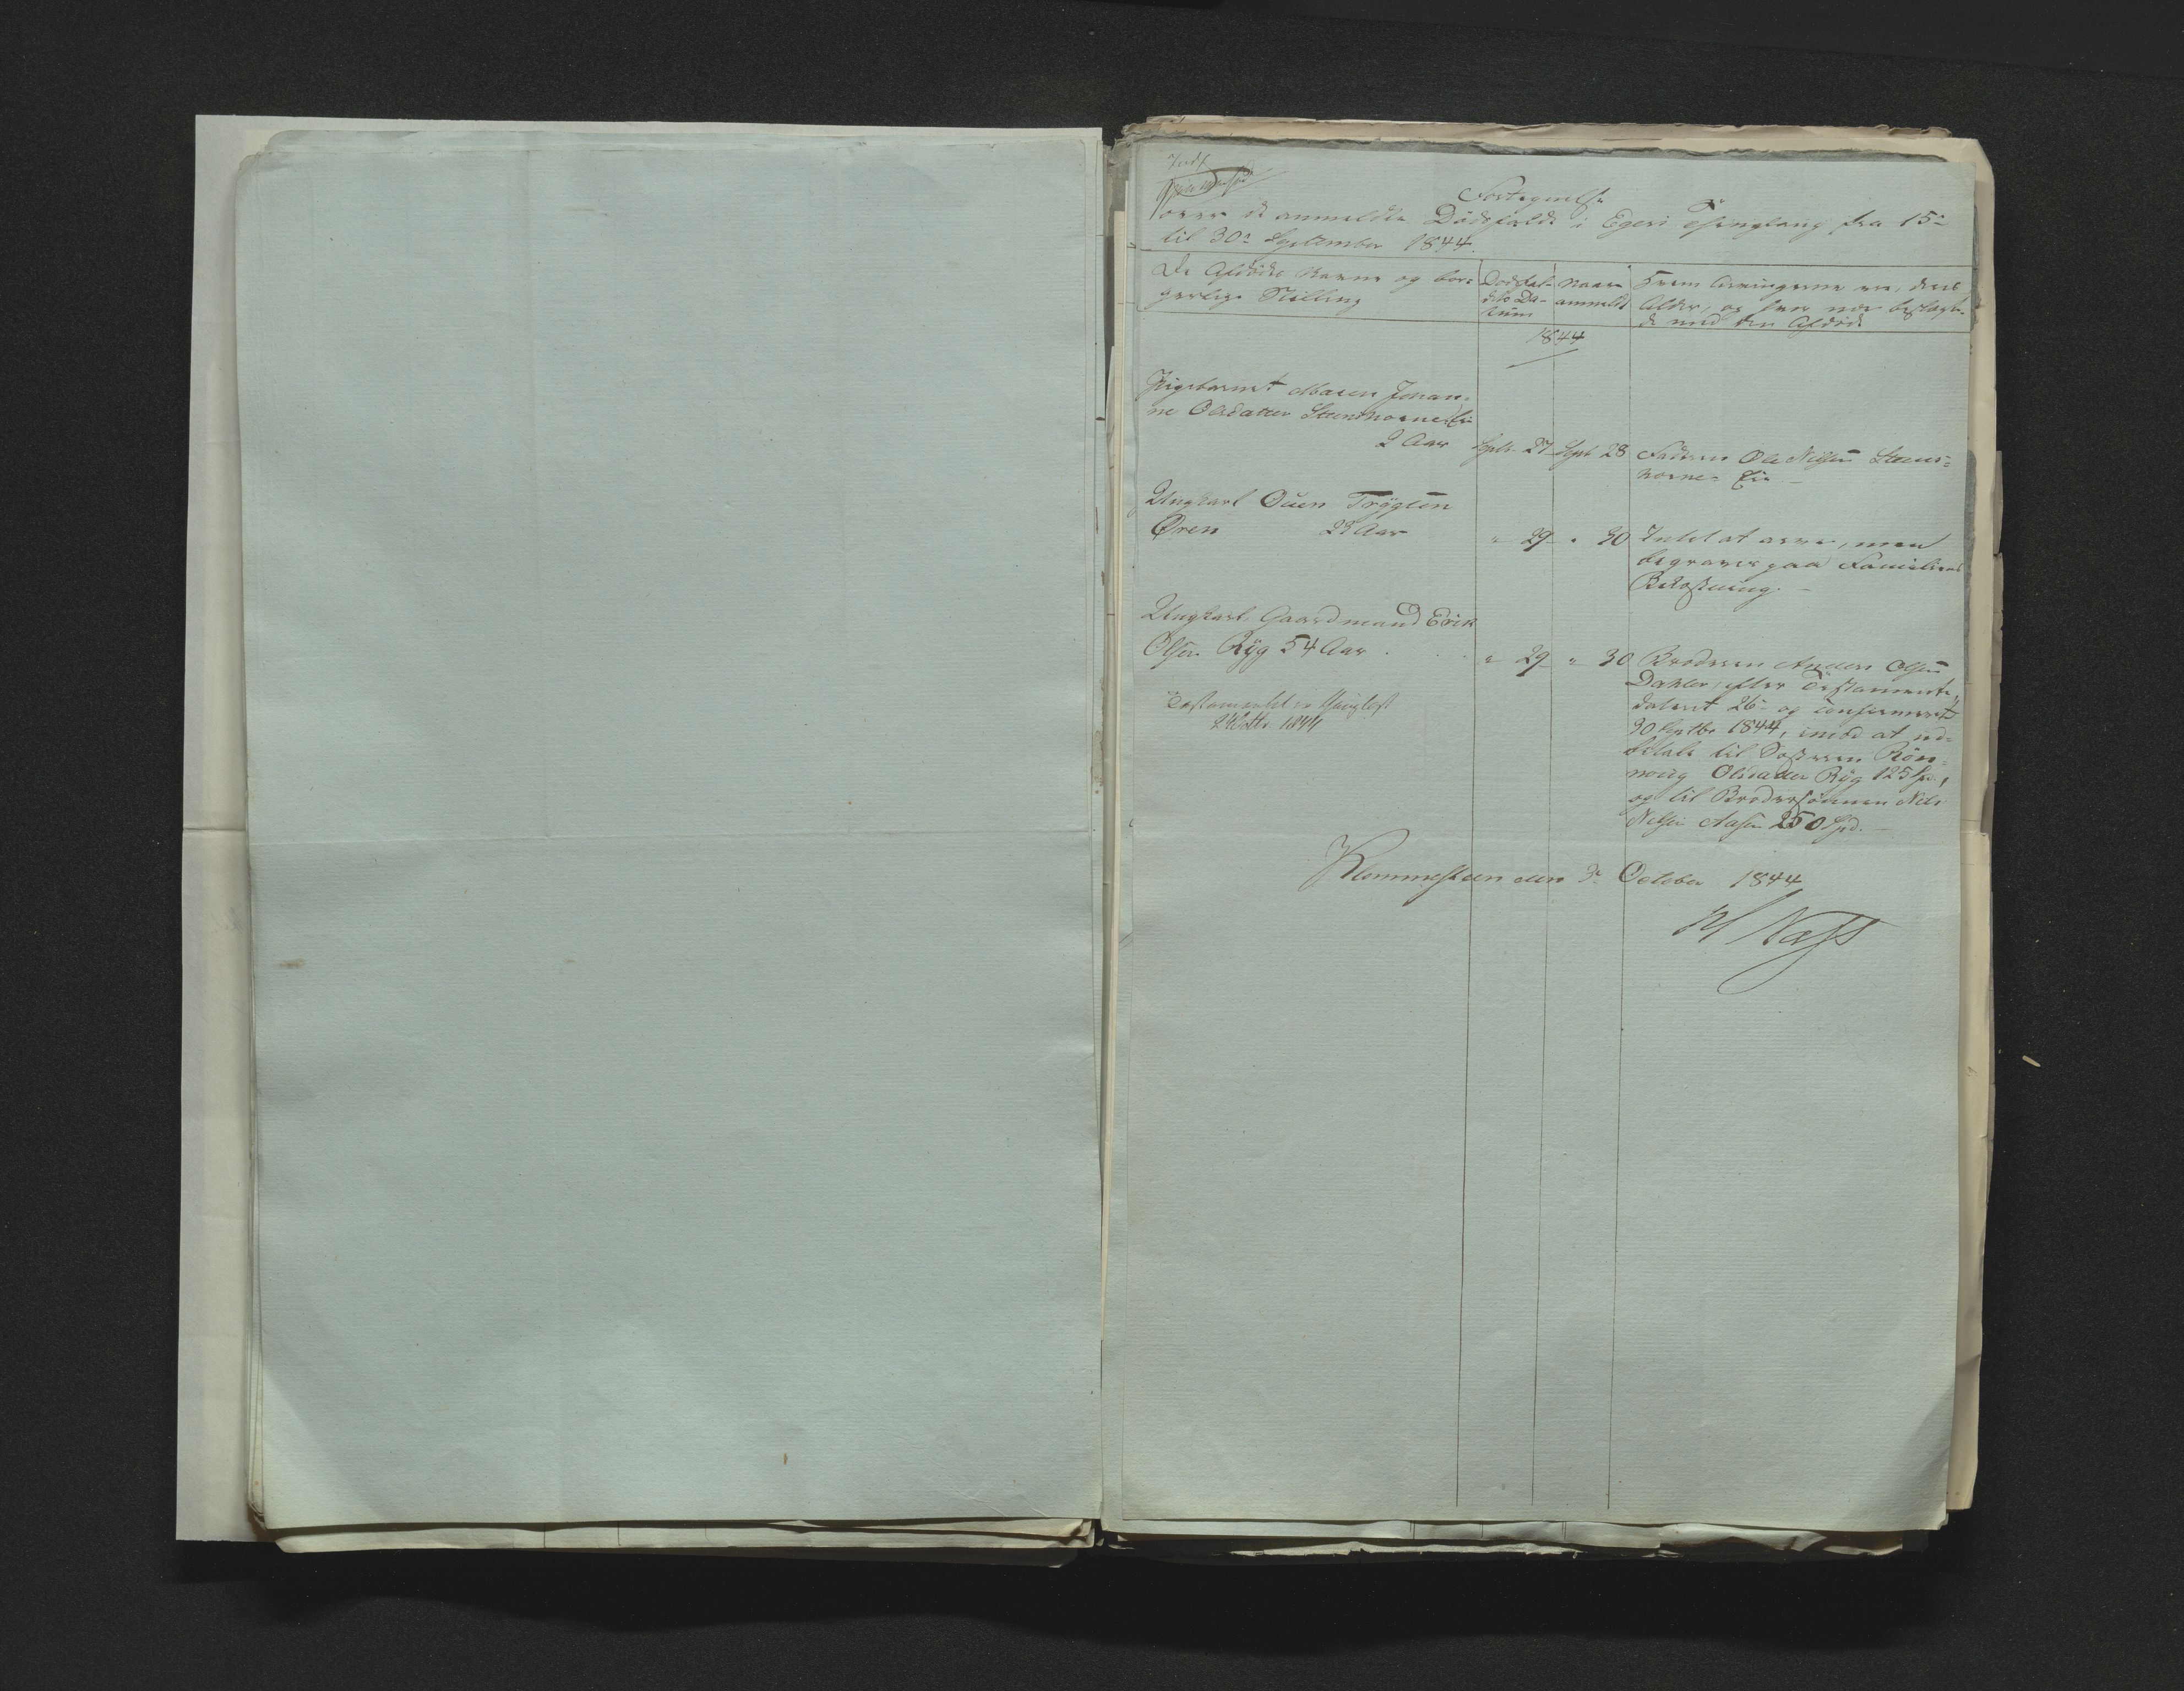 Indf
Fortegnelse
over de anmeldte Dödsfald i Egers Thinglaug fra 15de
til 30te September 1844.
De Afdödes Navne og bor-
gerlige Stilling
Dödsfal-
dets Da-
tum
Naar
anmeldt
Hvem Arvingerne ere, deres
Alder, og hvor nær beslægte-
de med den Afdöde
1844
Pigebarnet Maren Johan-
ne Olsdatter Steenshorne Eie
2 Aar
Septr 27
Sept 28
Faderen Ole Nilsen Steens-
horne Eie
Ungkarl Ouen Trÿgsen
Øren 23 Aar
" 29
" 30
Intet at arve, men
begraves paa Familiens
Bekostning.
Ungkarl Gaardmand Erik
Olsen Rÿg 54 Aar
" 29
" 30
Broderen Anders Olsen
Dahler, efter Testamente,
dateret 26de og confirmeret
30 Septbr 1844, imod at ud-
betale til Søsteren Rön-
noug Olsdatter Rÿg 125 Spd,
og til Brodersönnen Nils
Nilsen Aasen 250 Spd.
Testamentet er thinglæst
2 Octbr 1844
Klommesteen den 3de October 1844
H Næss